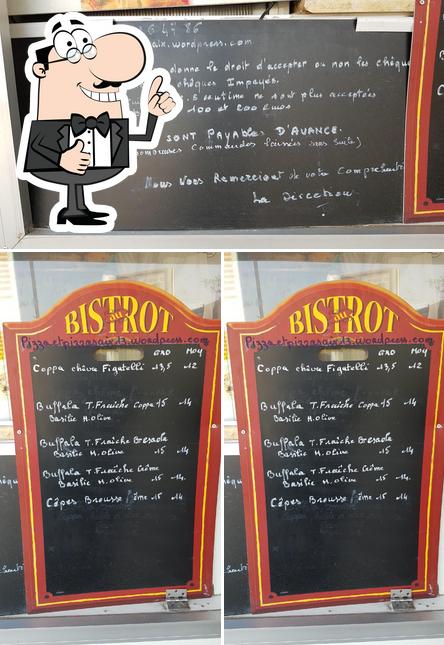 6 47 86
aix.wordpress.com
donne le droit d'accepter ou non les chèque
chèques Impayés.
5 centime ne sont plus acceptées
100 et 200 Euros
SONT PAYABLES D'AVANCE.
Commandes laissées sans suite)
Nous Vous Remercions de votre
La Direction
BISTROT
Pizzaetpizzasaix13.wordpress.com
GRD MOY
Coppa chèvre Figatelli 13,5 12
Buffala T.Fraîche Coppa 15 14
Basilic H.olive
Buffala T.Fraîche Bresaola
Basilic H.olive 15 14
Buffala T.Fraîche Crème
Basilic H.olive 15 14
Cèpes Brousse Crème 15 14
BISTROT
Pizzaetpizzasaix13.wordpress.com
GRD MOY
Coppa chèvre Figatelli 13,5 12
Buffala T.Fraîche Coppa 15 14
Basilic H.olive
Buffala T.Fraîche Bresaola
Basilic H.olive 15 14
Buffala T.Fraîche Crème
Basilic H.olive 15 14
Cèpes Brousse Crème 15 14